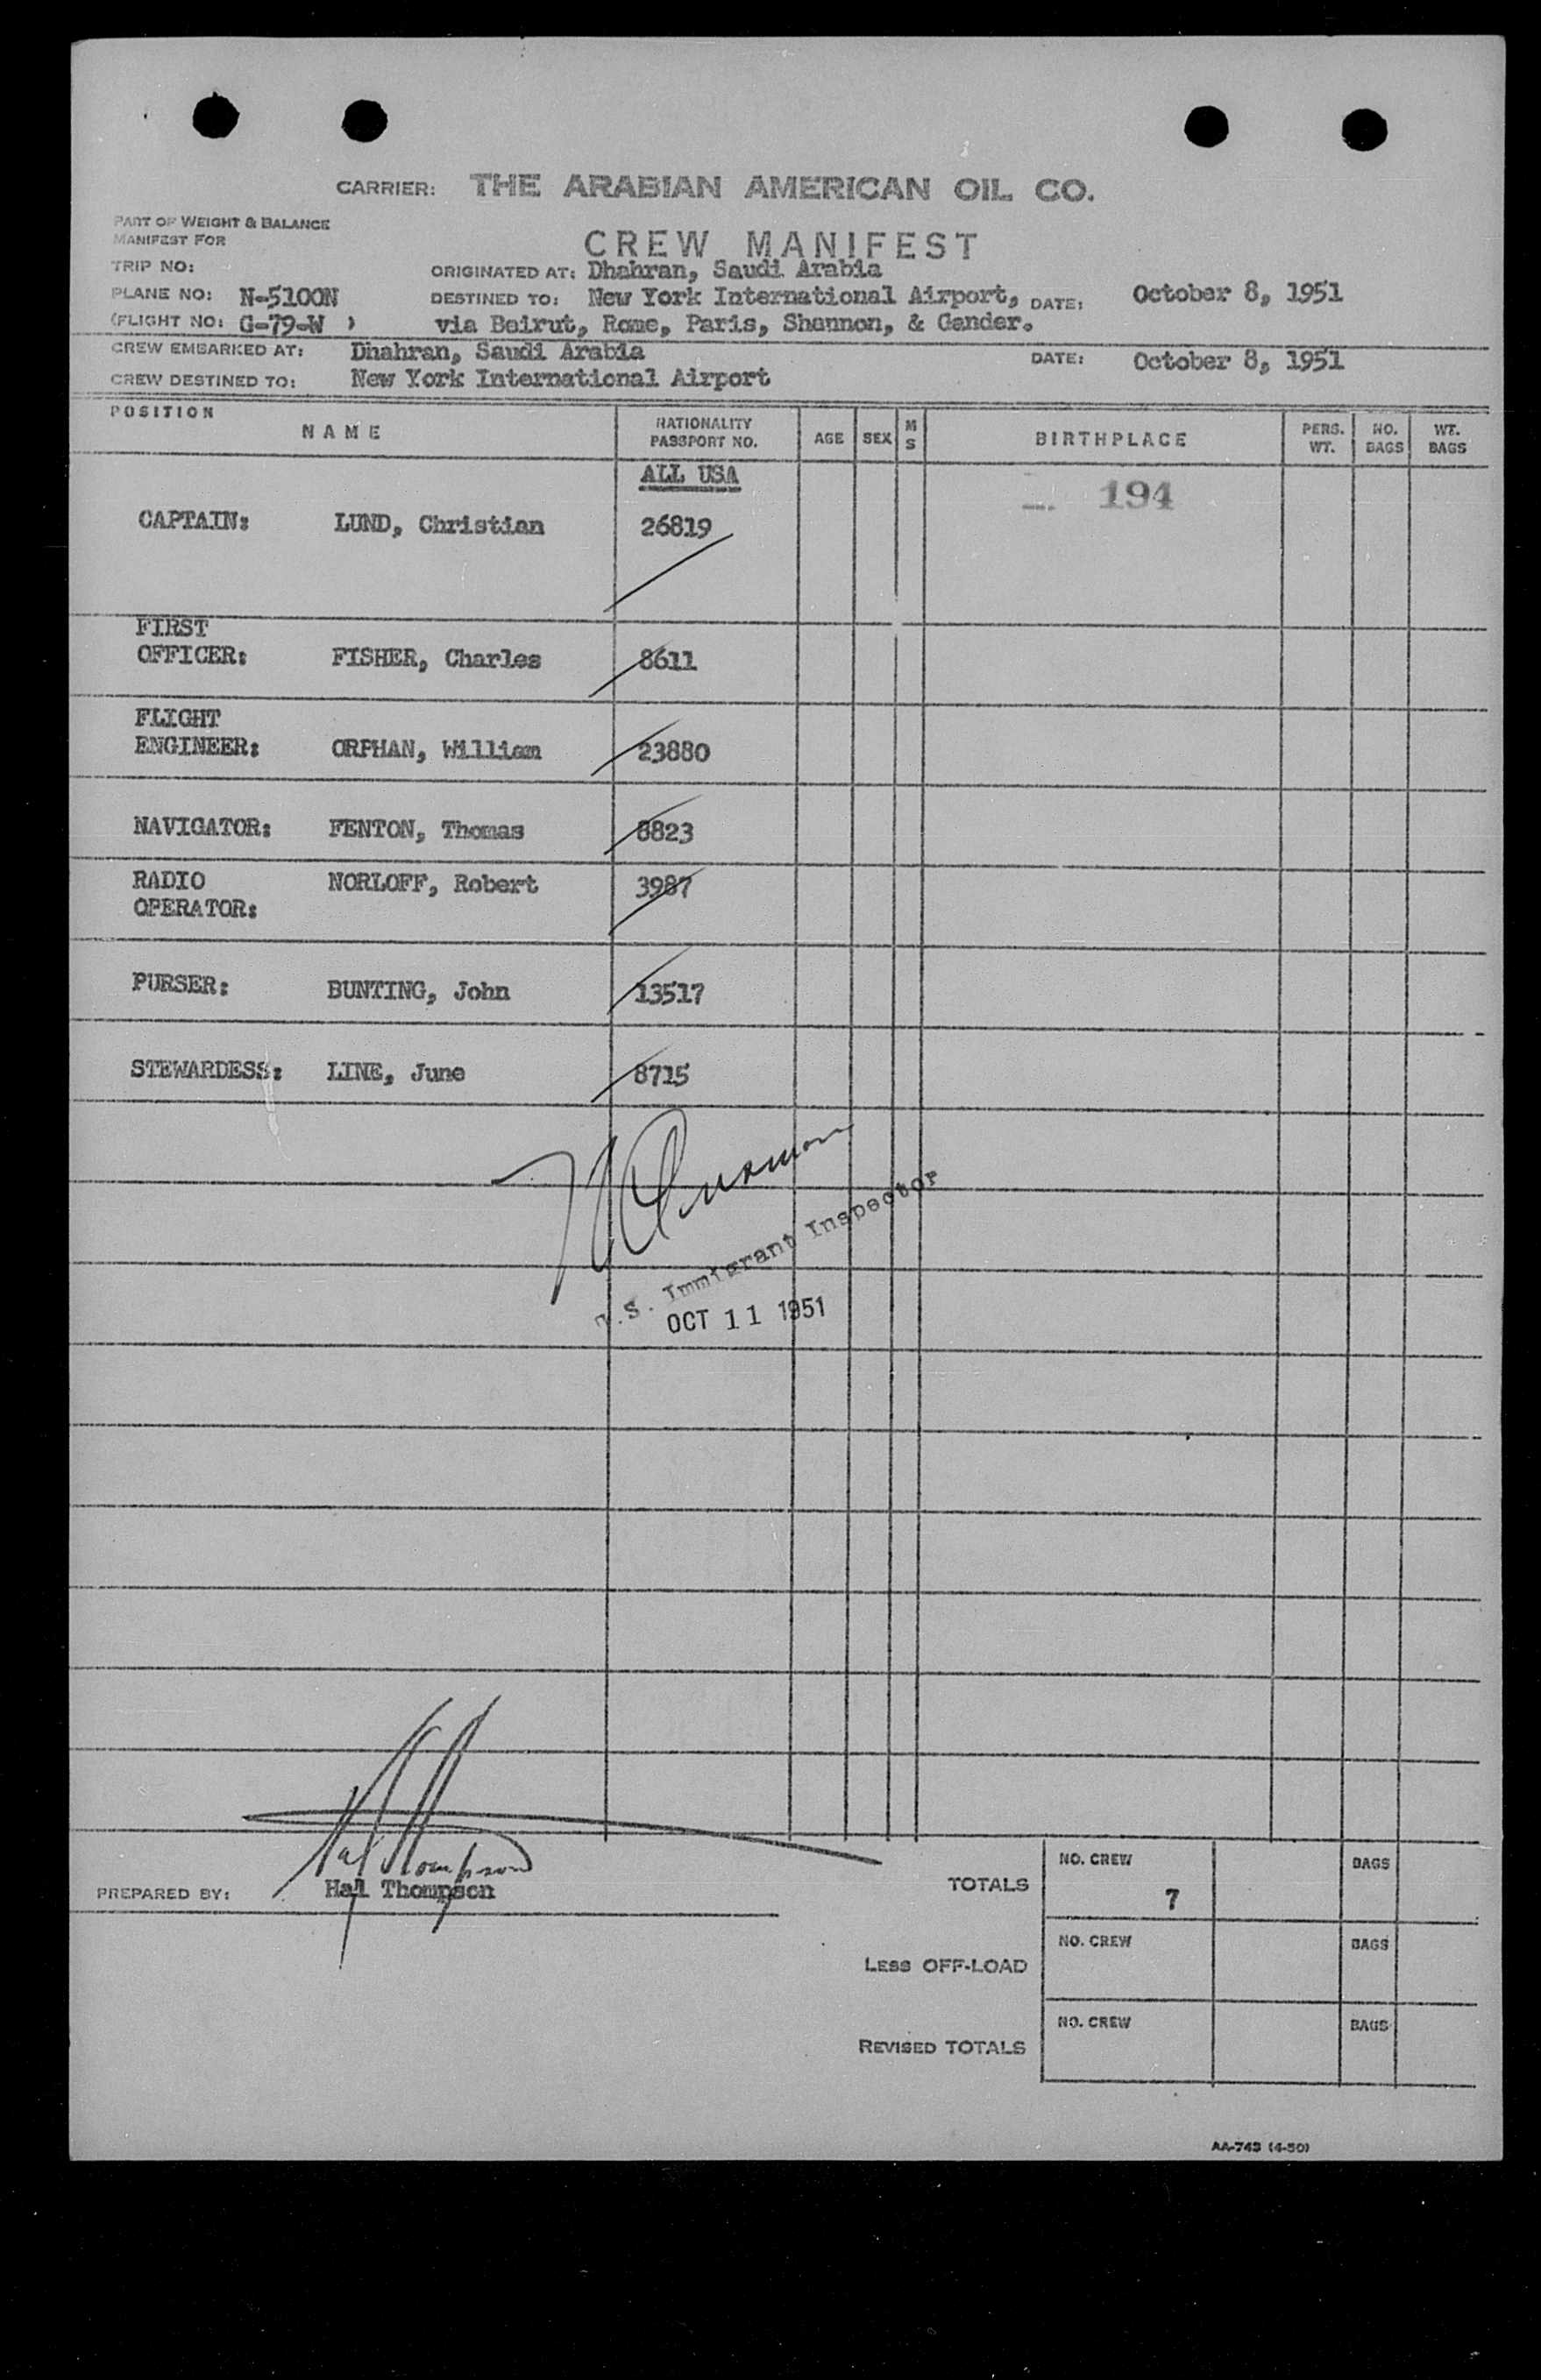 CARRIER: THE ARABIAN AMERICAN OIL CO.
PART OF WEIGHT & BALANCE
MANIFEST FOR
CREW MANIFEST
TRIP NO:
ORIGINATED AT: Dhahran, Saudi Arabia
PLANE NO: N-5100N
DESTINED TO: New York International Airport, DATE: October 8, 1951
(FLIGHT NO: G-79-W )
via Beirut, Rome, Paris, Shannon, & Gander.
CREW EMBARKED AT: Dhahran, Saudi Arabia DATE: October 8, 1951
CREW DESTINED TO: New York International Airport
POSITION NAME NATIONALITY PASSPORT NO. AGE SEX M S BIRTHPLACE PERS. WT. NO. BAGS WT. BAGS
ALL USA
194
CAPTAIN: LUND, Christian 26819
FIRST
OFFICER: FISHER, Charles 8611
FLIGHT
ENGINEER: ORPHAN, William 23880
NAVIGATOR: FENTON, Thomas 8823
RADIO NORLOFF, Robert 3987
OPERATOR:
PURSER: BUNTING, John 13517
STEWARDESS: LINE, June 8715
U.S. Immigrant Inspector
OCT 11 1951
Hal Thompson
PREPARED BY: Hal Thompson
TOTALS NO. CREW 7 BAGS
LESS OFF-LOAD NO. CREW BAGS
REVISED TOTALS NO. CREW BAGS
AA-743 (4-50)